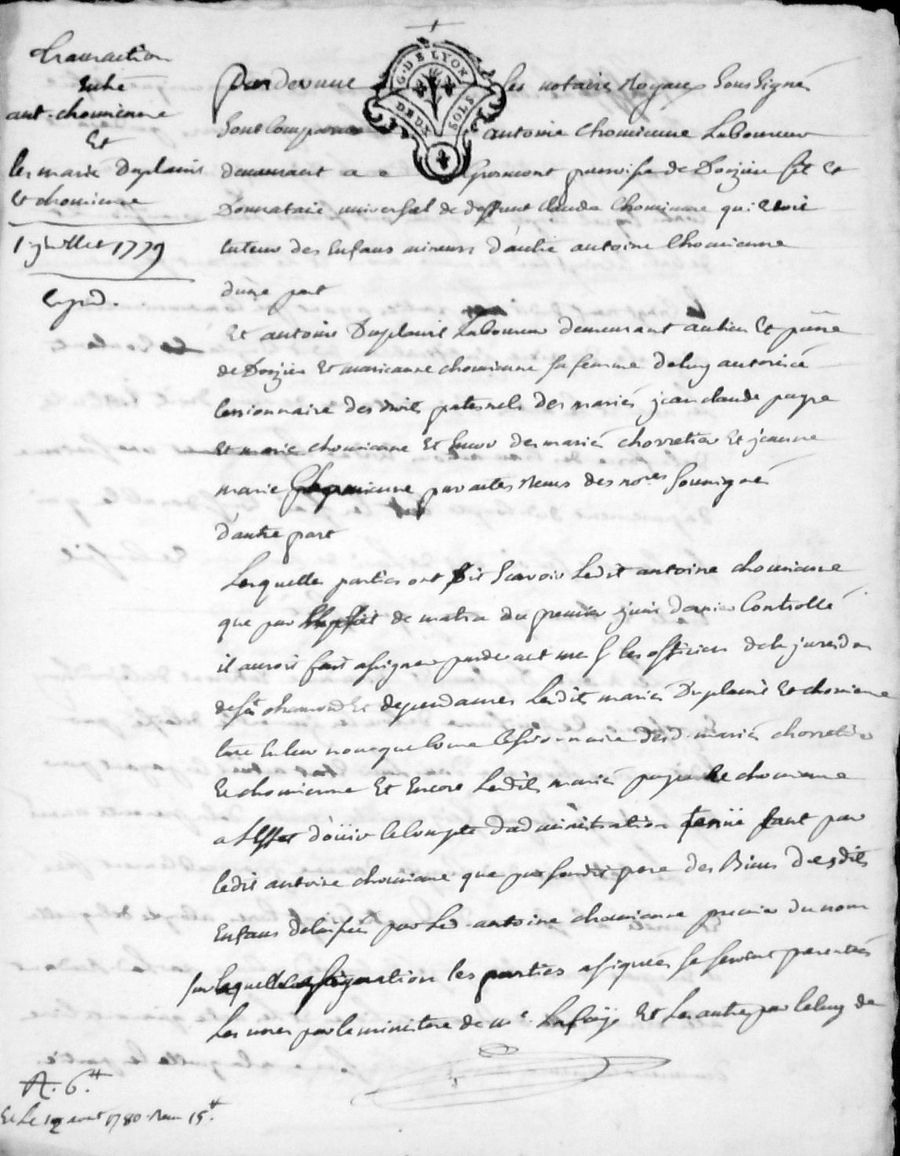 transaction
Entre
ant. chomienne
Et
les mariés Duplainis
et chomienne
1er juillet 1779
Expd.
G. DE LYON
DEUX SOLS
Pardevant les notaire Royaux Soussigné
Sont Comparus antoine Chomienne Laboureur
demeurant a paroisse de Doizieu fils et
Donnataire universel de deffunt Claude Chomienne qui etoit
tuteur des Enfans mineurs d'autre antoine Chomienne
dune part
Et antoine Duplainis Laboureur demeurant au lieu Et psse
de Doizieu Et marieanne chomienne sa femme deluy autorisée
Cessionnaire des droits paternels des mariés jean claude payre
et marie chomienne Et Encor des mariés chorretier Et jeanne
marie Chomienne par actes Recus des nores Soussignés
d'autre part
Lesquelles parties ont dit Scavoir Ledit antoine chomienne
que par Exploit de du premier juin dernier Controllé
il auroit fait assigner pardevant mes les officiers de la juridon
de St chamond Et dependances Lesdits mariés Duplainis Et chomienne
tant En leur nom que Comme Cessionnaire desd. mariés chorretier
Et chomienne Et Encore Lesdits mariés payre Et chomienne
a Effet d'ouir le Compte d'administration tenüe tant par
ledit antoine chomienne que par sondit pere des Biens desdits
Enfans delaissés par Led. antoine chomienne premier du nom
sur laquelle assignation les parties assignées se seroient presentés
Les unes par le ministere de me. Lafaÿe Et Les autres par Celuy de
A. 6.tt
Et Le 12 aout 1780 Recu 15.tt